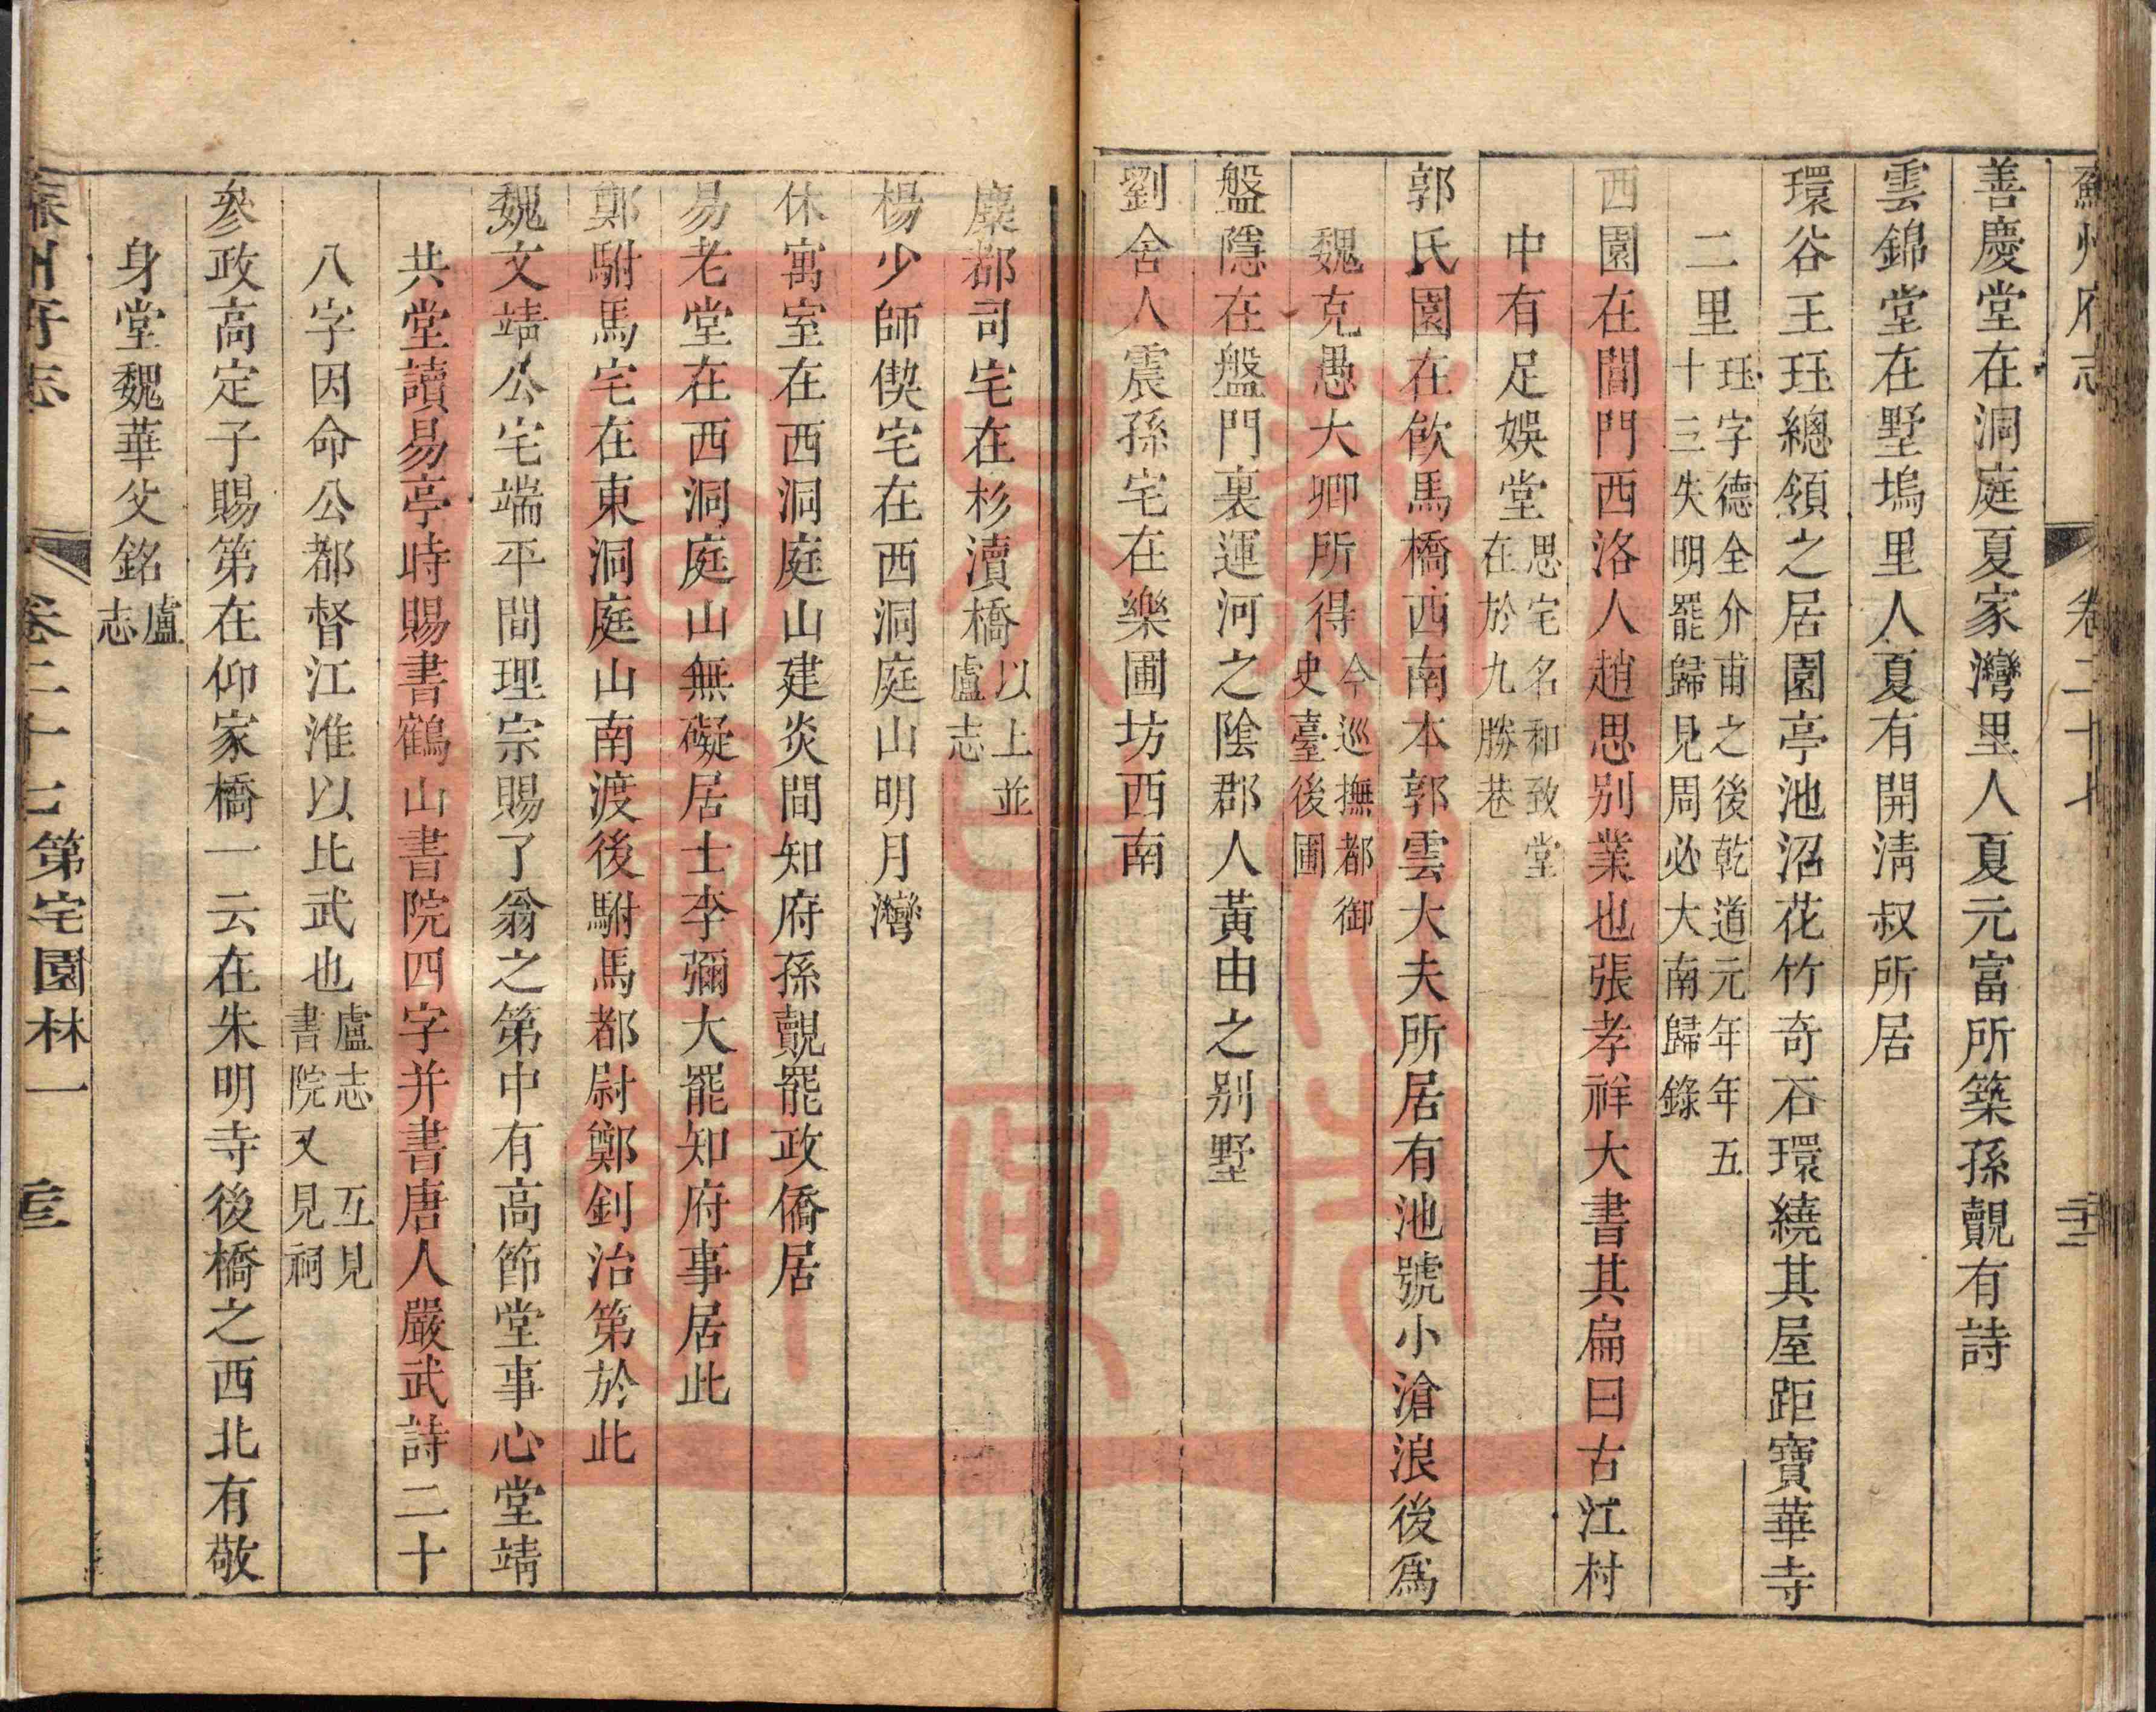 蘇州府志 卷二十七
善慶堂在洞庭夏家灣里人夏元富所築孫覿有詩
雲錦堂在墅塢里人夏有開淸叔所居
環谷王珏總領之居園亭池沼花竹奇石環繞其屋距寶華寺
二里珏字德全介甫之後乾道元年年五
十三失明罷歸見周必大南歸錄
西園在閶門西洛人趙思别業也張孝祥大書其扁曰古江村
中有足娛堂思宅名和致堂
在於九勝巷
郭氏園在飮馬橋西南本郭雲大夫所居有池號小滄浪後爲
魏克愚大卿所得今巡撫都御
史臺後圃
盤隱在盤門裏運河之陰郡人黃由之别墅
劉舍人震孫宅在樂圃坊西南
糜都司宅在杉瀆橋以上並
盧志
楊少師偰宅在西洞庭山明月灣
休寓室在西洞庭山建炎間知府孫覿罷政僑居
易老堂在西洞庭山無礙居士李彌大罷知府事居此
鄭駙馬宅在東洞庭山南渡後駙馬都尉鄭釗治第於此
魏文靖公宅端平間理宗賜了翁之第中有高節堂事心堂靖
共堂讀易亭時賜書鶴山書院四字并書唐人嚴武詩二十
八字因命公都督江淮以比武也盧志 互見
書院又見祠
參政高定子賜第在仰家橋一云在朱明寺後橋之西北有敬
身堂魏華父銘盧
志
蘇州府志 卷二十七 第宅園林一